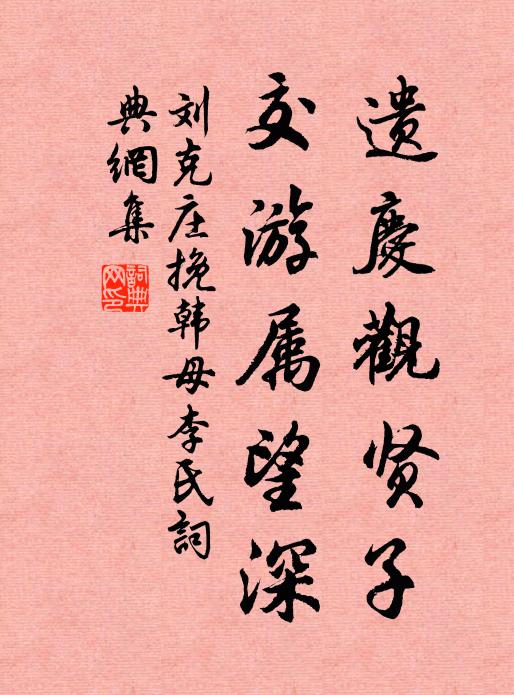 遗慶觀贤子
交游属望深
刘克庄挽韩母李氏詞
典網集
詞典网印